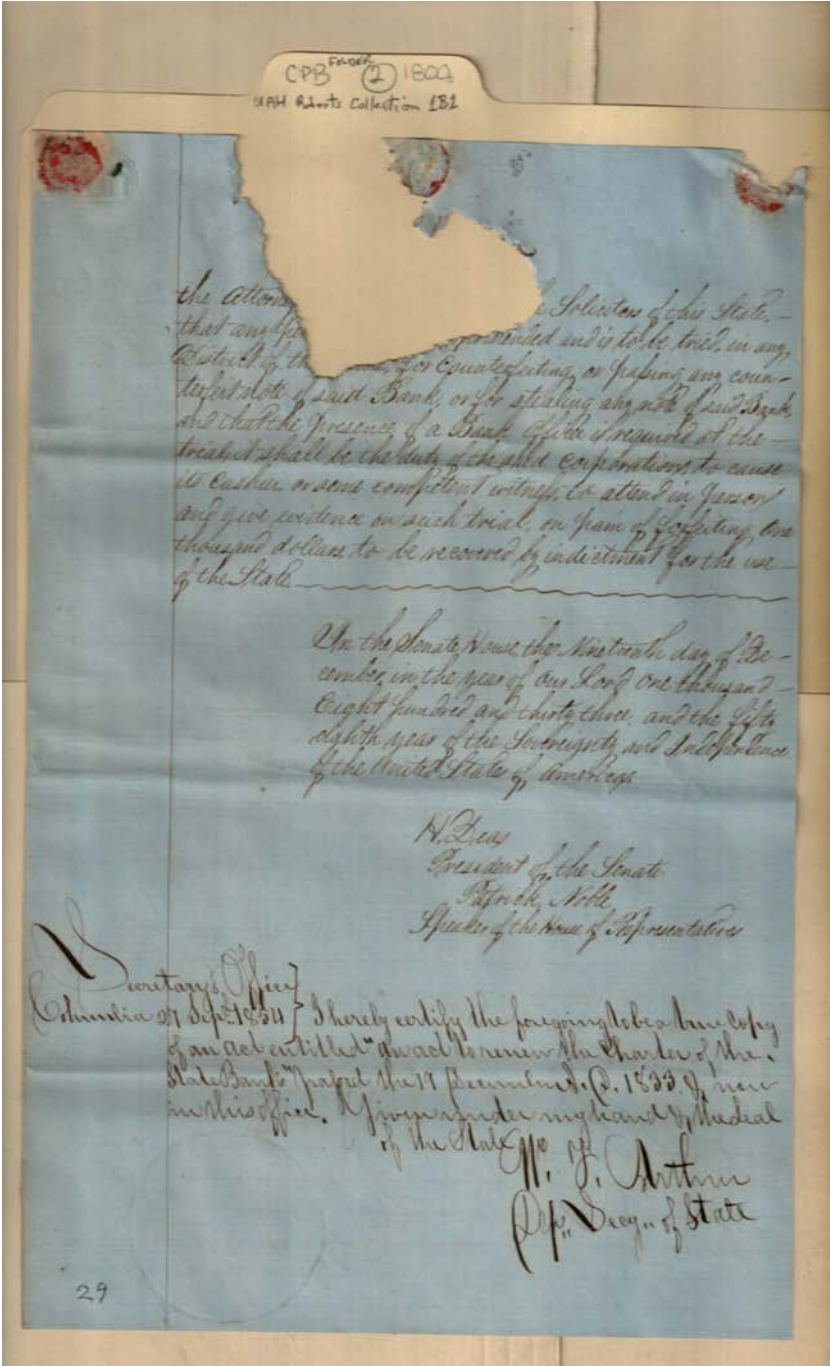 CPB FOLDER 2 180
UAH Roberts Collection 181
the Attorn Solicitors of this State,
that any pe prehended and is to be tried, in any
District of th for Counterfeiting, or passing any coun-
terfeit note of said Bank, or for stealing any note of said Bank,
and that the presence of a Bank Officer is required at the
trial, it shall be the duty of the said Corporations, to cause
its Cashier or some competent witness, to attend in person
and give evidence on such trial, on pain of forfeiting, One
thousand dollars, to be recovered by indictment for the use
of the State
In the Senate House the Nineteenth day of De-
cember, in the year of Our Lord One thousand
Eight hundred and thirty three, and the fifty
eighth year of the Sovereignty and Independence
of the United States of America
H. Deas
President of the Senate
Patrick Noble
Speaker of the House of Representatives
Secretary's Office
Columbia 27 Sept. 1854 } I hereby certify the foregoing to be a true copy
of an act entitled "an act to renew the Charter of the
State Bank" passed the 19 December A.D. 1833 & now
in this office. Given under my hand & the seal
of the State
W. F. Arthur
Dep. Secy. of State
29